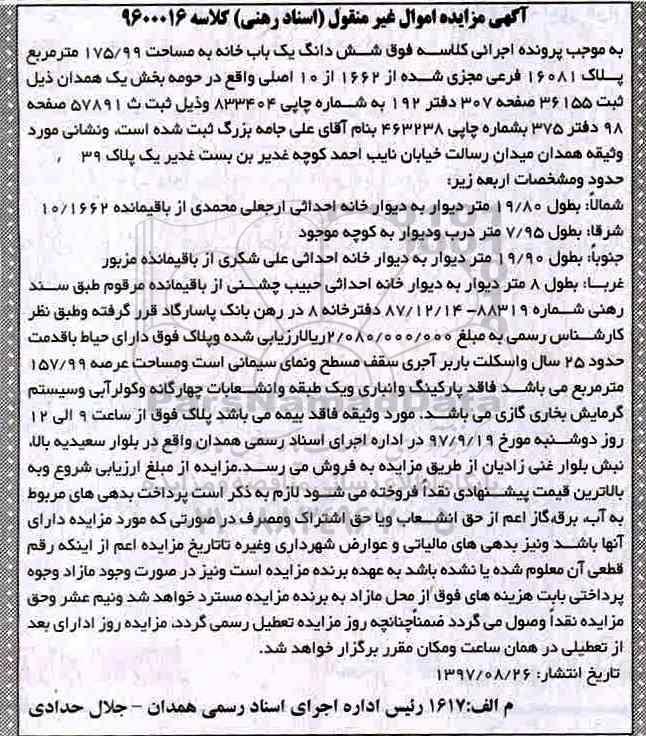 آگهی مزایده اموال غیر منقول (اسناد رهنی) کلاسه ۹۶۰۰۰۱۶
به موجب پرونده اجرائی کلاسه فوق شش دانگ یک باب خانه به مساحت ۱۷۵/۹۹ مترمربع
پلاک ۱۶۰۸۱ فرعی مجزی شده از ۱۶۶۲ از ۱۰ اصلی واقع در حومه بخش یک همدان ذیل
ثبت ۳۶۱۵۵ صفحه ۳۰۷ دفتر ۱۹۲ به شماره چاپی ۸۳۳۴۰۴ وذیل ثبت ث ۵۷۸۹۱ صفحه
۹۸ دفتر ۳۷۵ بشماره چاپی ۴۶۳۲۳۸ بنام آقای علی جامه بزرگ ثبت شده است، ونشانی مورد
وثیقه همدان میدان رسالت خیابان نایب احمد کوچه غدیر بن بست غدیر یک پلاک ۳۹ ،
حدود ومشخصات اربعه زیر:
شمالاً: بطول ۱۹/۸۰ متر دیوار به دیوار خانه احداثی ارجعلی محمدی از باقیمانده ۱۰/۱۶۶۲
شرقا: بطول ۷/۹۵ متر درب ودیوار به کوچه موجود
جنوباً: بطول ۱۹/۹۰ متر دیوار به دیوار خانه احداثی علی شکری از باقیمانده مزبور
غربا: بطول ۸ متر دیوار به دیوار خانه احداثی حبیب چشنی از باقیمانده مرقوم طبق سند
رهنی شماره ۸۸۳۱۹- ۸۷/۱۲/۱۴ دفترخانه ۸ در رهن بانک پاسارگاد قرر گرفته وطبق نظر
کارشناس رسمی به مبلغ ۲/۰۸۰/۰۰۰/۰۰۰ریالارزیابی شده وپلاک فوق دارای حیاط باقدمت
حدود ۲۵ سال واسکلت باربر آجری سقف مسطح ونمای سیمانی است ومساحت عرصه ۱۵۷/۹۹
مترمربع می باشد فاقد پارکینگ وانباری ویک طبقه وانشعابات چهارگانه وکولرآبی وسیستم
گرمایش بخاری گازی می باشد. مورد وثیقه فاقد بیمه می باشد پلاک فوق از ساعت ۹ الی ۱۲
روز دوشنبه مورخ ۹۷/۹/۱۹ در اداره اجرای اسناد رسمی همدان واقع در بلوار سعیدیه بالا،
نبش بلوار غنی زادیان از طریق مزایده به فروش می رسد.مزایده از مبلغ ارزیابی شروع وبه
بالاترین قیمت پیشنهادی نقداً فروخته می شود لازم به ذکر است پرداخت بدهی های مربوط
به آب، برق،گاز اعم از حق انشعاب ویا حق اشتراک ومصرف در صورتی که مورد مزایده دارای
آنها باشد ونیز بدهی های مالیاتی و عوارض شهرداری وغیره تاتاریخ مزایده اعم از اینکه رقم
قطعی آن معلوم شده یا نشده باشد به عهده برنده مزایده است ونیز در صورت وجود مازاد وجوه
پرداختی بابت هزینه های فوق از محل مازاد به برنده مزایده مسترد خواهد شد ونیم عشر وحق
مزایده نقداً وصول می گردد ضمناًچنانچه روز مزایده تعطیل رسمی گردد، مزایده روز ادارای بعد
از تعطیلی در همان ساعت ومکان مقرر برگزار خواهد شد.
تاریخ انتشار: ۱۳۹۷/۰۸/۲۶
م الف:۱۶۱۷ رئیس اداره اجرای اسناد رسمی همدان – جلال حدادی